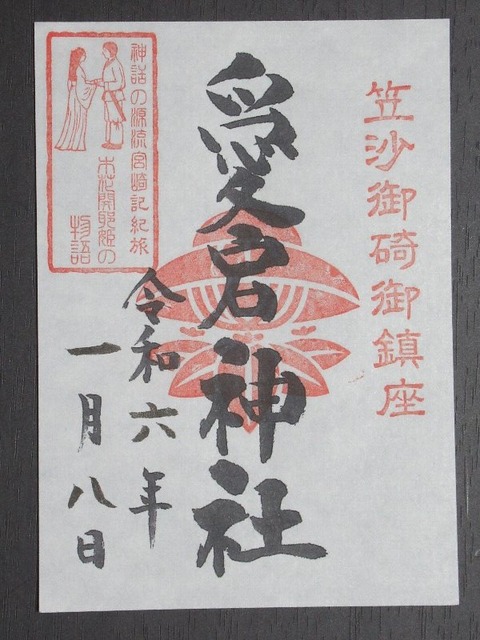 笠沙御碕御鎮座
愛宕神社
令和六年
一月八日
神話の源流宮崎記紀旅
木花開耶姫の
物語